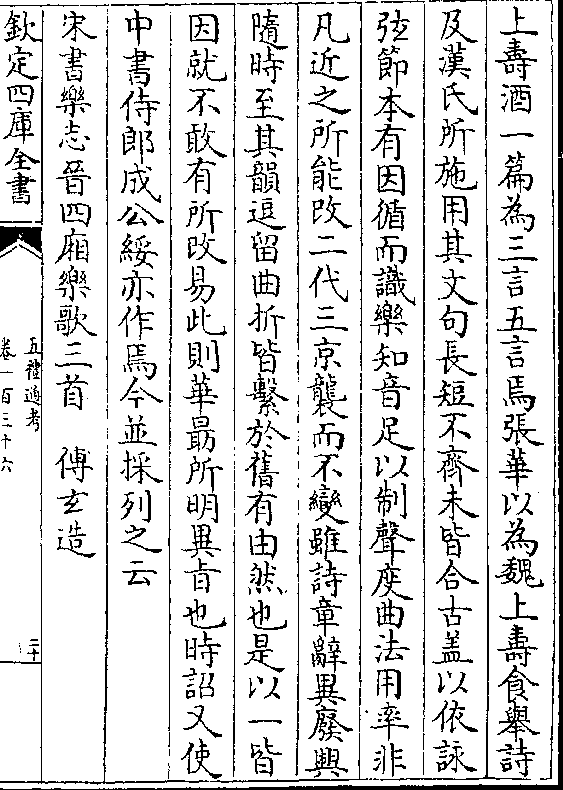 上壽酒一篇為三言五言焉張華以為魏上壽食舉詩
及漢氏所施用其文句長短不齊未皆合古盖以依詠
弦節本有因循而識樂知音足以制聲度曲法用率非
凡近之所能改二代三京襲而不變雖詩章辭異廢興
隨時至其韻逗留曲折皆繫於舊有由然也是以一皆
因就不敢有所改易此則華勗所明異旨也時詔又使
中書侍郎成公綏亦作焉今並採列之云
宋書樂志晉四廂樂歌三首　傅玄造
欽定四庫全書
五禮通考
卷一百三十六
二十